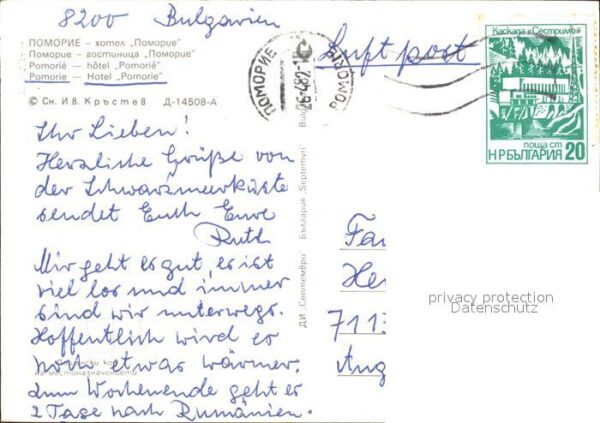 8200 Bulgarien
ПОМОРИЕ — хотел „Поморие"
Поморие — гостиница „Поморие"
Pomorié — hôtel „Pomorié"
Pomorie — Hotel „Pomorie"
© Сн. И В. Кръстев Д-14508-А
Luftpost
ПОМОРИЕ
26.4.82-1
ПОМОРИЕ
Каскада „Сестримо"
поща ст
НР БЪЛГАРИЯ 20
Ihr Lieben!
Herzliche Grüße von
der Schwarzmeerküste
sendet Euch Eure
Ruth
Mir geht es gut, es ist
viel los und immer
sind wir unterwegs.
Hoffentlich wird es
noch etwas wärmer.
Zum Wochenende geht es
2 Tage nach Rumänien.
местоназначението
ДИ „Септември" България „Septemvri" Bulg
Fa
He
7113
Aug
privacy protection
Datenschutz